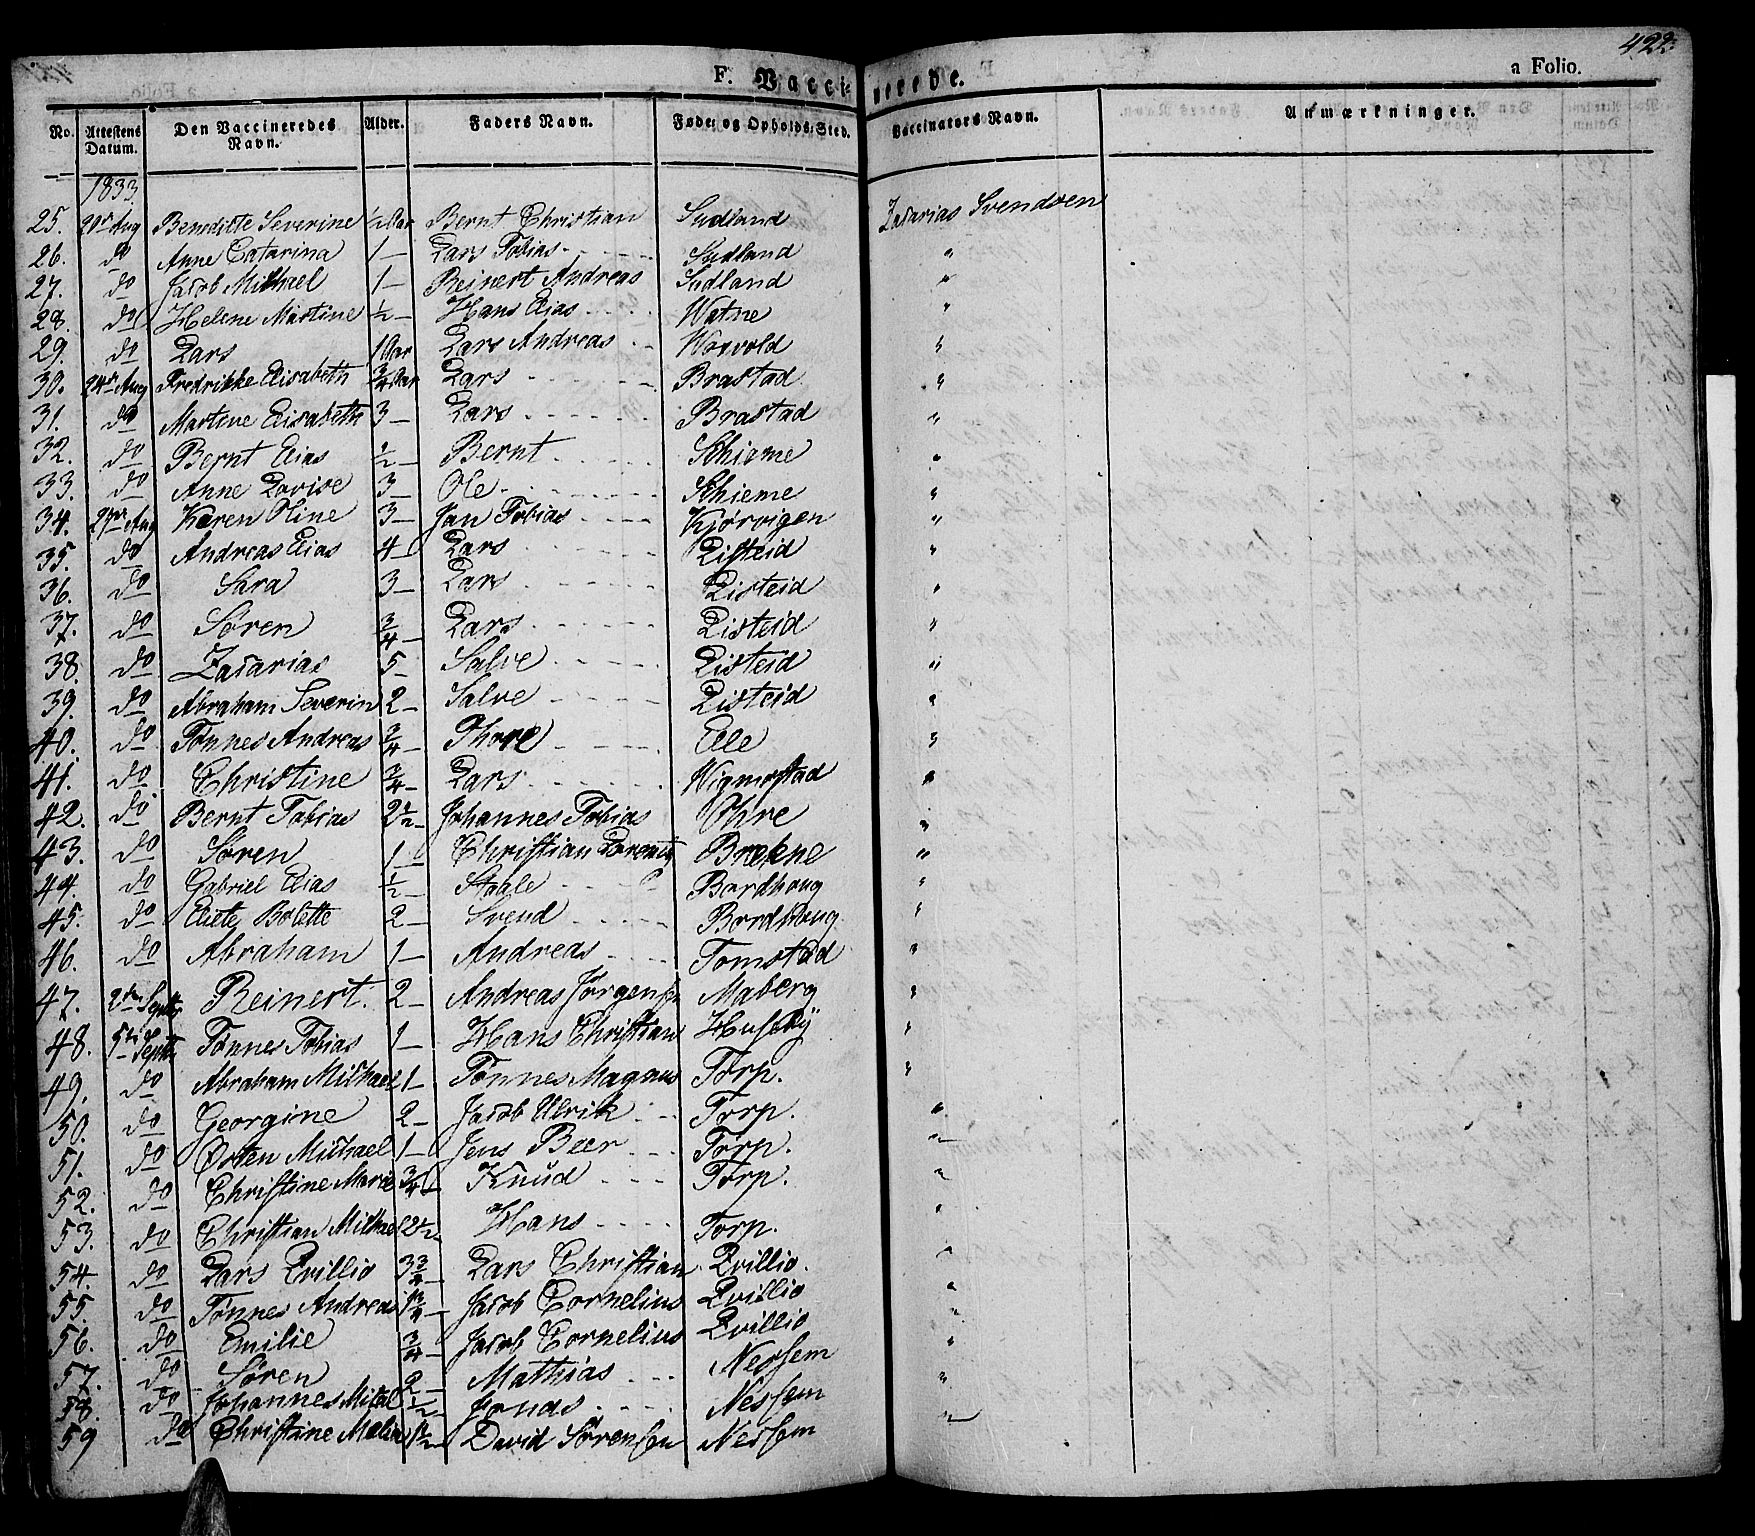 422.
F. Vaccinerede.
a Folio.
No. Attestens Datum. Den Vaccineredes Navn. Alder. Faders Navn. Føde- og Opholds-Sted. Vaccinators Navn. Anmærkninger.
1833
25. 20de Aug Benedicte Severine ½ Aar Bernt Christian Sudland Zacarias Svendsen
26. do Anne Catarina 1 — Lars Tobias Sudland "
27. do Jacob Michael 1 — Reinert Andreas Sudland "
28. do Helene Martine ½ — Hans Elias Watne "
29. do Lars 1 Aar Lars Andreas "
30. 24de Aug Fredrikke Elisabeth ¾ Aar Lars Brastad "
31. do Martine Elisabeth 3 — Lars Brastad "
32. do Bernt Elias ½ — Bernt Schieme "
33. do Anne Lovise 3 — Ole Schieme "
34. 27de Aug Karen Oline 3 — Jan Tobias Kjørvigen "
35. do Andreas Elias 4 — Lars Listeid "
36. do Sara 3 — Lars Listeid "
37. do Søren ¾ — Lars Listeid "
38. do Zacarias 5 — Salve Listeid "
39. do Abraham Severin 2 — Salve Listeid "
40. do Tønnes Andreas ¾ — Thore Elle "
41. do Christine ¾ — Lars Wigmostad "
42. do Bernt Tobias 2½ — Johannes Tobias Ohre "
43. do Søren 1 — Christian Lorentz Brekne "
44. do Gabriel Elias ½ — Staale Bordhoug "
45. do Elete Bolette 2 — Svend Bordhoug "
46. do Abraham 1 — Andreas Tomstad "
47. 2den Septbr Reinert. 2 — Andreas Jørgensen Maberg "
48. 5te Septbr Tønnes Tobias 1 — Hans Christian Huseby "
49. do Abraham Michael 1 — Tønnes Magnus Torp. "
50. do Georgine 2 — Jacob Ulrik Torp. "
51. do Østen Michael 1 — Jens Beer Torp. "
52. do Christine Marie ¾ — Knud Torp. "
53. do Christian Michael 2½ Hans Torp. "
54. do Lars Qvillio 3¾ — Lars Christian Qvillio. "
55. do Tønnes Andreas Jacob Cornelius Qvillio "
56. do Emilie ¾ — Jacob Cornelius Qvillio "
57. do Søren 2 — Mathias Nessem "
58. do Johannes Micael ½ — Jonas Nessem "
59 do Christine Malia 1½ — David Sørensen Nessem "